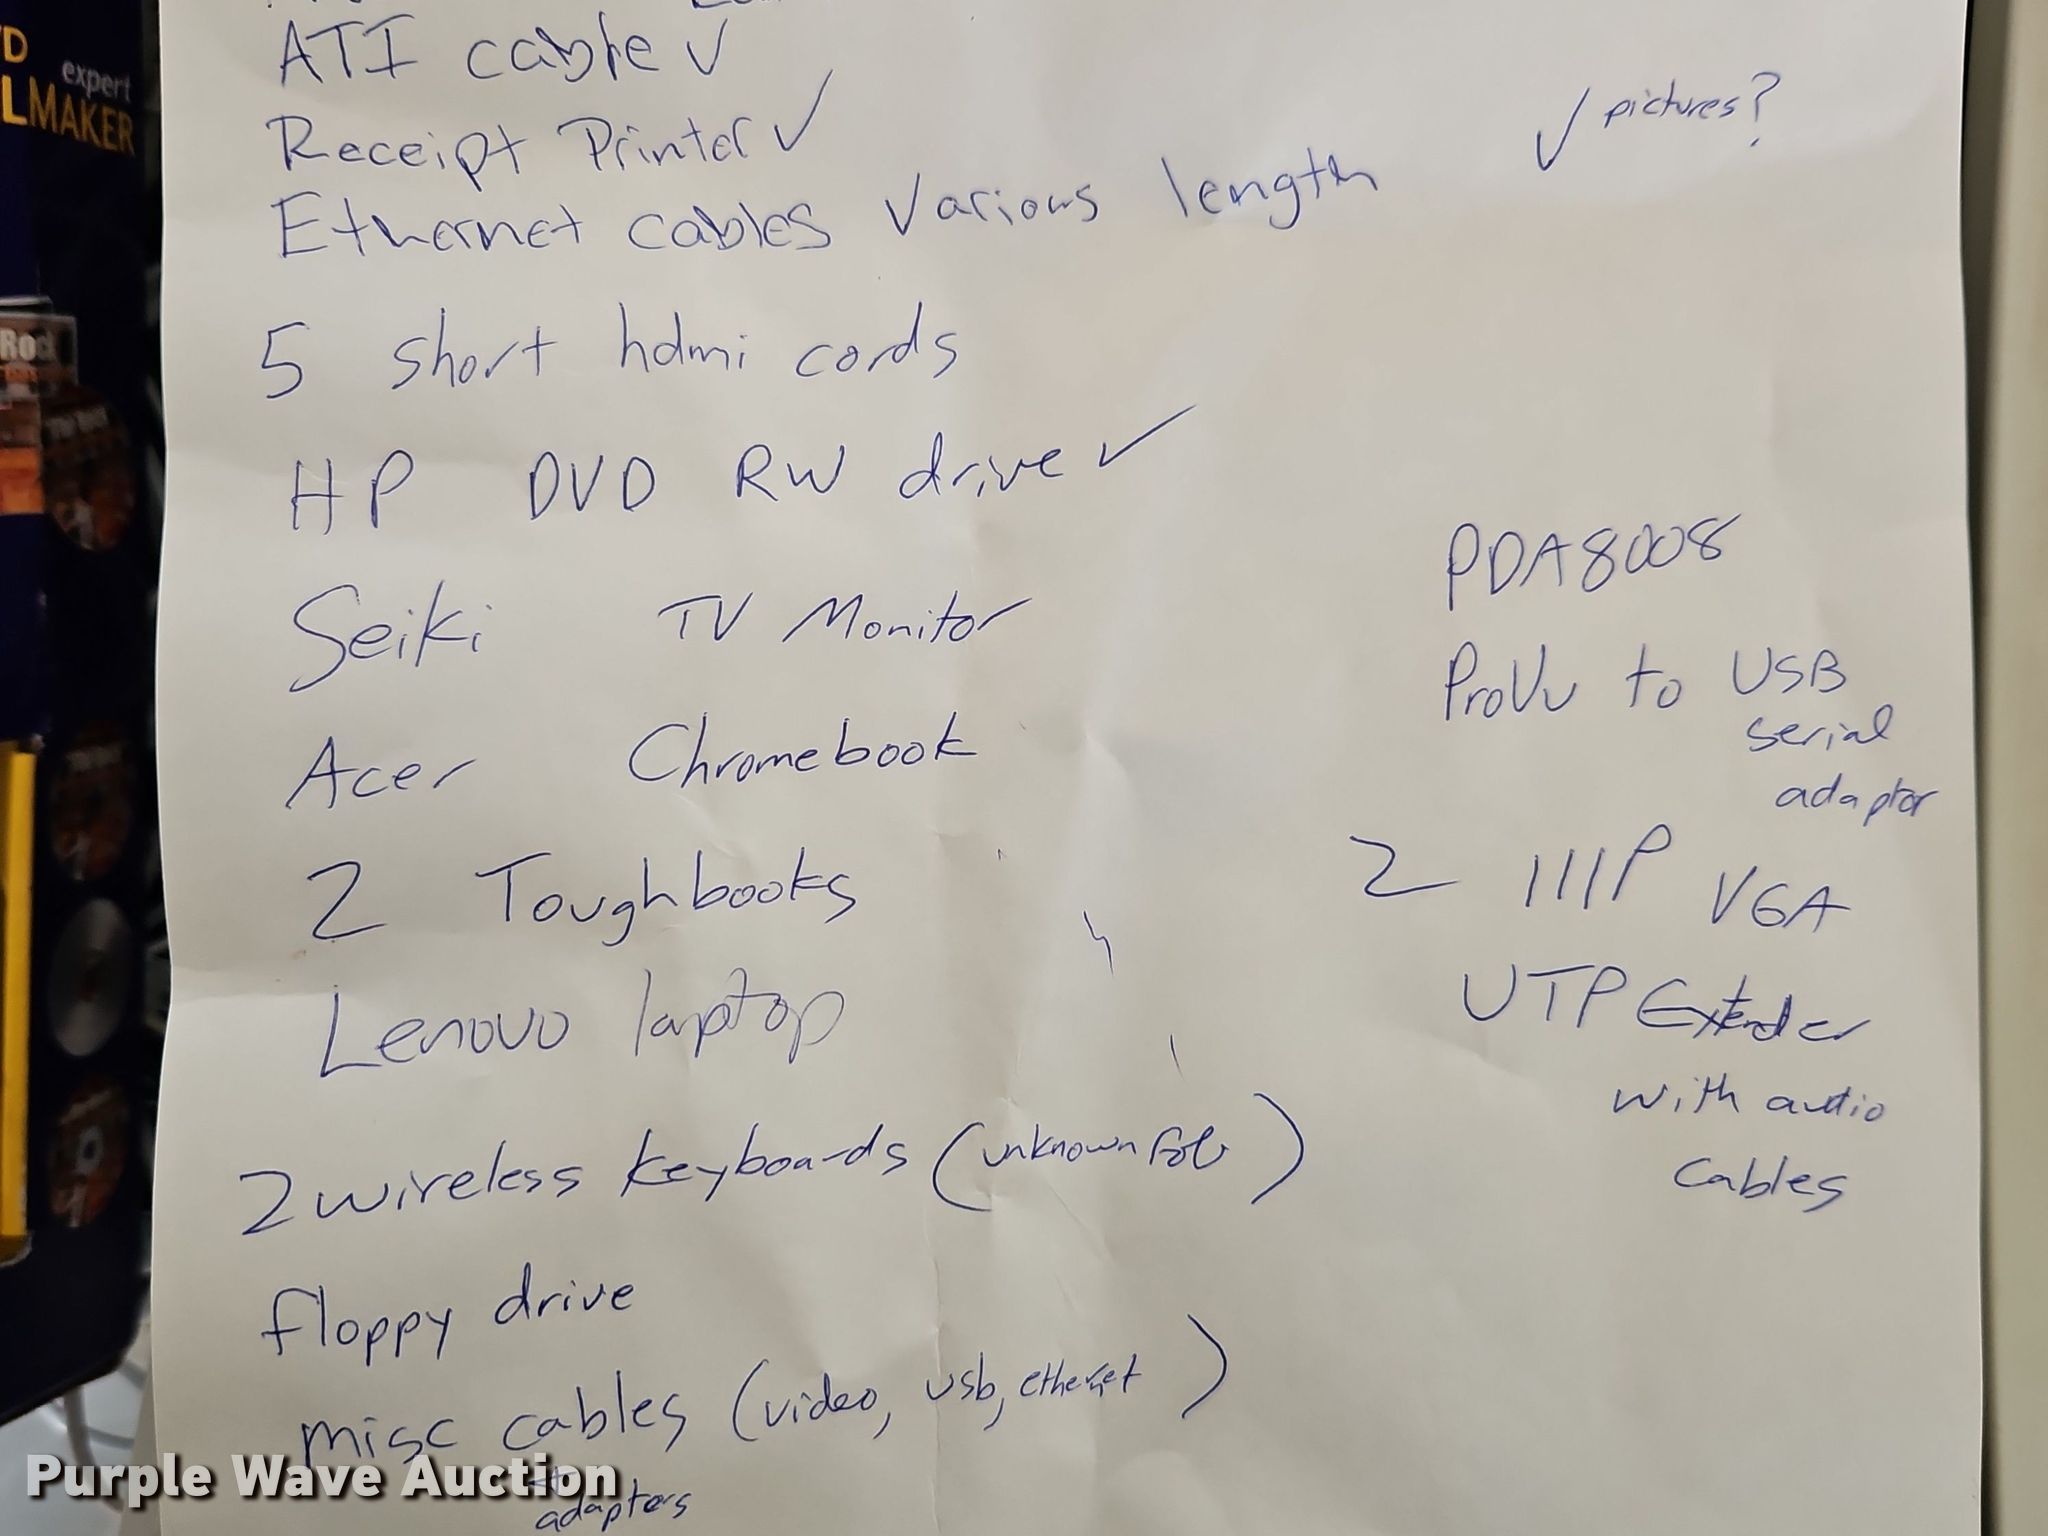 ATI cable ✓
Receipt Printer ✓
✓ pictures?
Ethernet cables various length
5 short hdmi cords
HP DVD RW drive ✓
Seiki TV Monitor
Acer Chromebook
2 Toughbooks
Lenovo laptop
2 wireless keyboards (unknown fob)
floppy drive
misc cables (video, usb, ethernet)
+
adapters
PDA8008
ProVu to USB
serial
adaptor
2 111P VGA
UTP Extender
with audio
cables
expert
LMAKER
Rock
Purple Wave Auction